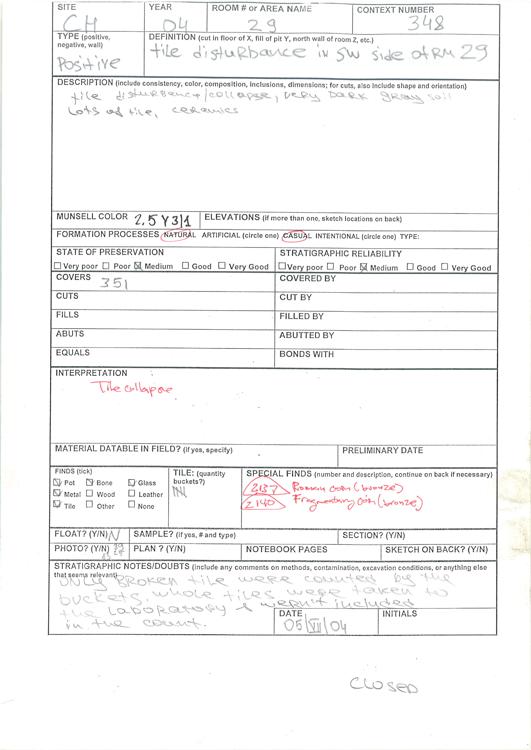 SITE YEAR ROOM # OR AREA NAME CONTEXT NUMBER
CH 04 29 348
TYPE (positive, negative, wall) DEFINITION (cut in floor of X, fill of pit Y, north wall of room Z, etc.)
Positive tile disturbance in SW side of RM 29
DESCRIPTION (include consistency, color, composition, inclusions, dimensions; for cuts, also include shape and orientation)
tile disturbance/collapse, very dark gray soil
lots of tile, ceramics
MUNSELL COLOR 2,5 Y 3/1 ELEVATIONS (if more than one, sketch locations on back)
FORMATION PROCESSES NATURAL ARTIFICIAL (circle one) CASUAL INTENTIONAL (circle one) TYPE:
STATE OF PRESERVATION STRATIGRAPHIC RELIABILITY
Very poor Poor Medium Good Very Good Very poor Poor Medium Good Very Good
COVERS 351 COVERED BY
CUTS CUT BY
FILLS FILLED BY
ABUTS ABUTTED BY
EQUALS BONDS WITH
INTERPRETATION
Tile collapse
MATERIAL DATABLE IN FIELD? (if yes, specify) PRELIMINARY DATE
FINDS (tick) TILE: (quantity buckets?) SPECIAL FINDS (number and description, continue on back if necessary)
Pot Bone Glass 2137 Roman coin (bronze)
Metal Wood Leather 2140 Fragmentary coin (bronze)
Tile Other None
FLOAT? (Y/N) N SAMPLE? (if yes, # and type) SECTION? (Y/N)
PHOTO? (Y/N) PLAN ? (Y/N) NOTEBOOK PAGES SKETCH ON BACK? (Y/N)
STRATIGRAPHIC NOTES/DOUBTS (include any comments on methods, contamination, excavation conditions, or anything else that seems relevant)
ONLY BROKEN tile were counted by the
buckets, whole tiles were taken to
the laboratory & weren't included
in the count.
DATE INITIALS
05/VII/04
CLOSED